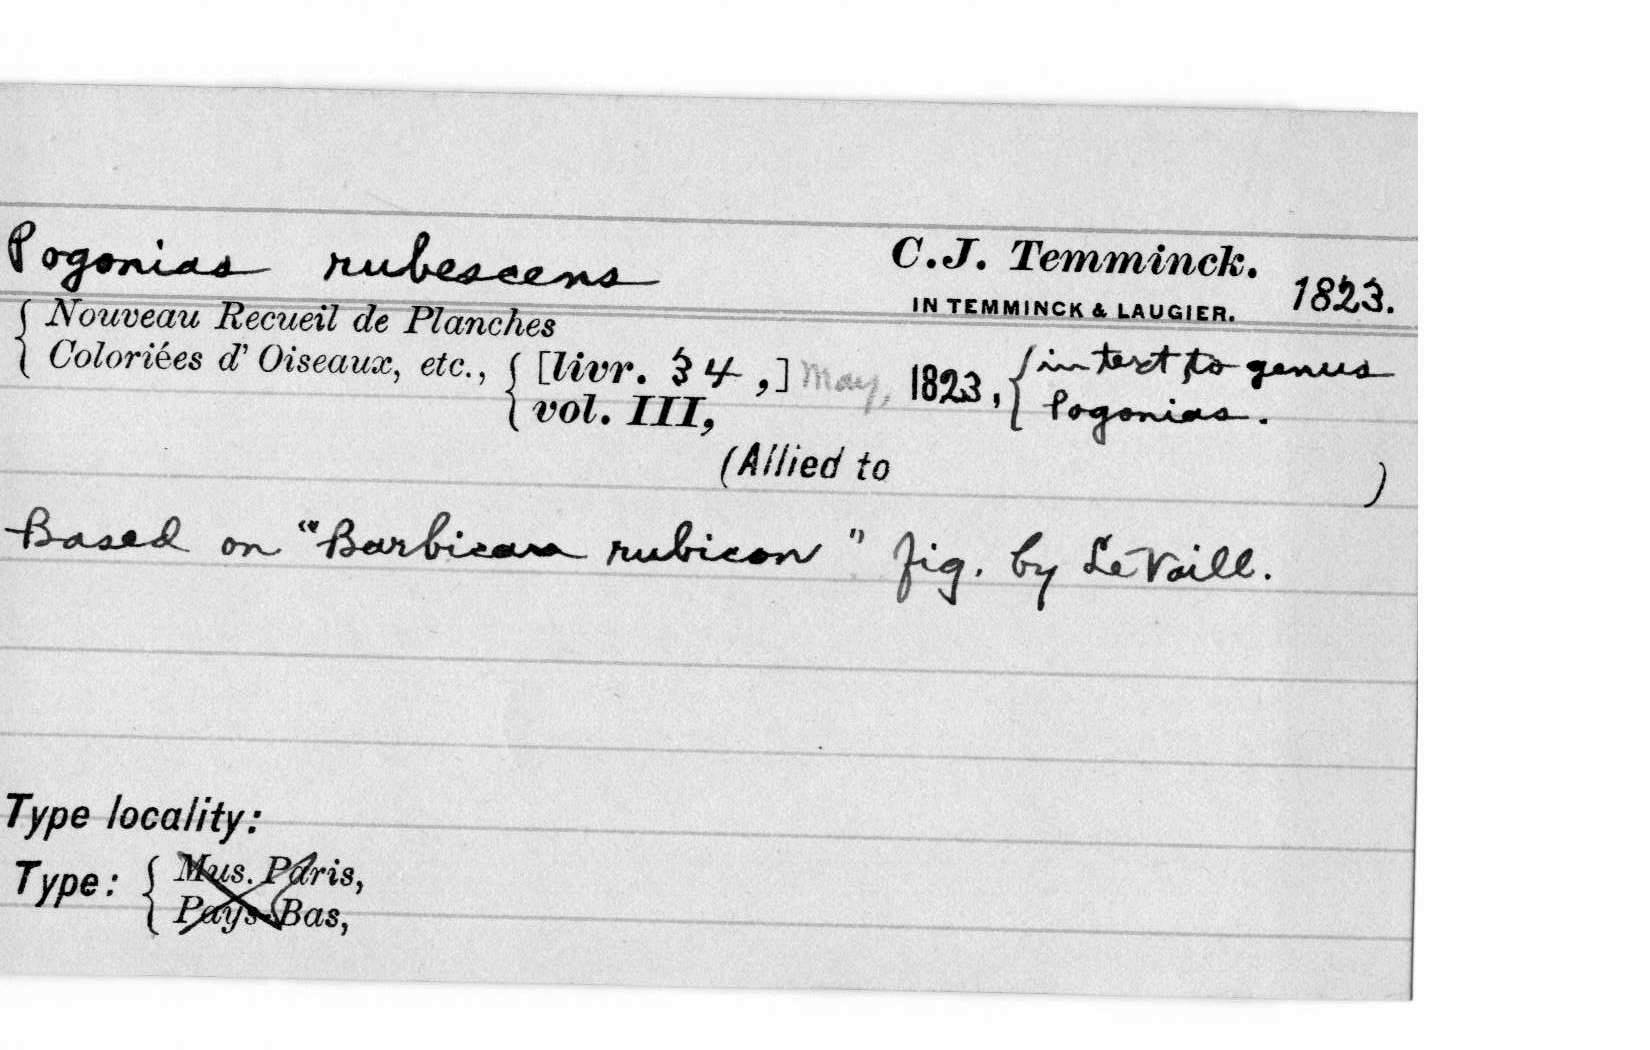 Pogonias rubescens C.J. Temminck. 1823.
IN TEMMINCK & LAUGIER.
Nouveau Recueil de Planches
Coloriées d' Oiseaux, etc., [livr. 34,] May, 1823, in text to genus
vol. III, Pogonias.
(Allied to )
Based on "Barbican rubicon" fig. by Le Vaill.
Type locality:
Type: Mus. Paris,
Pays-Bas,